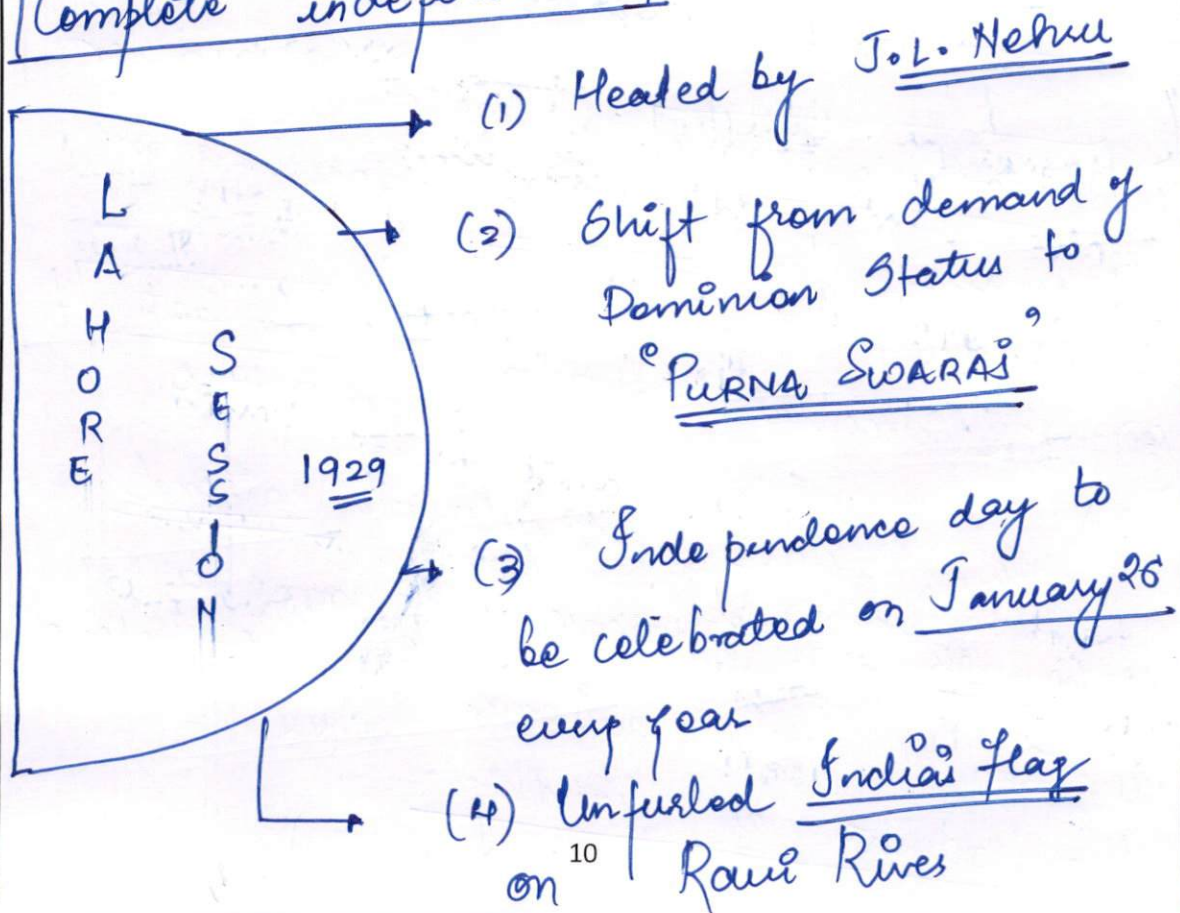 Complete
L
A
H
O
R
E
S
E
S
S
I
O
N
1929
(1) Heated by J.L. Nehru
(2) Shift from demand of
Dominion Status to
'PURNA SWARAJ'
(3) Independence day to
be celebrated on January 26
every year
(4) Unfurled India's flag
10
on Ravi River